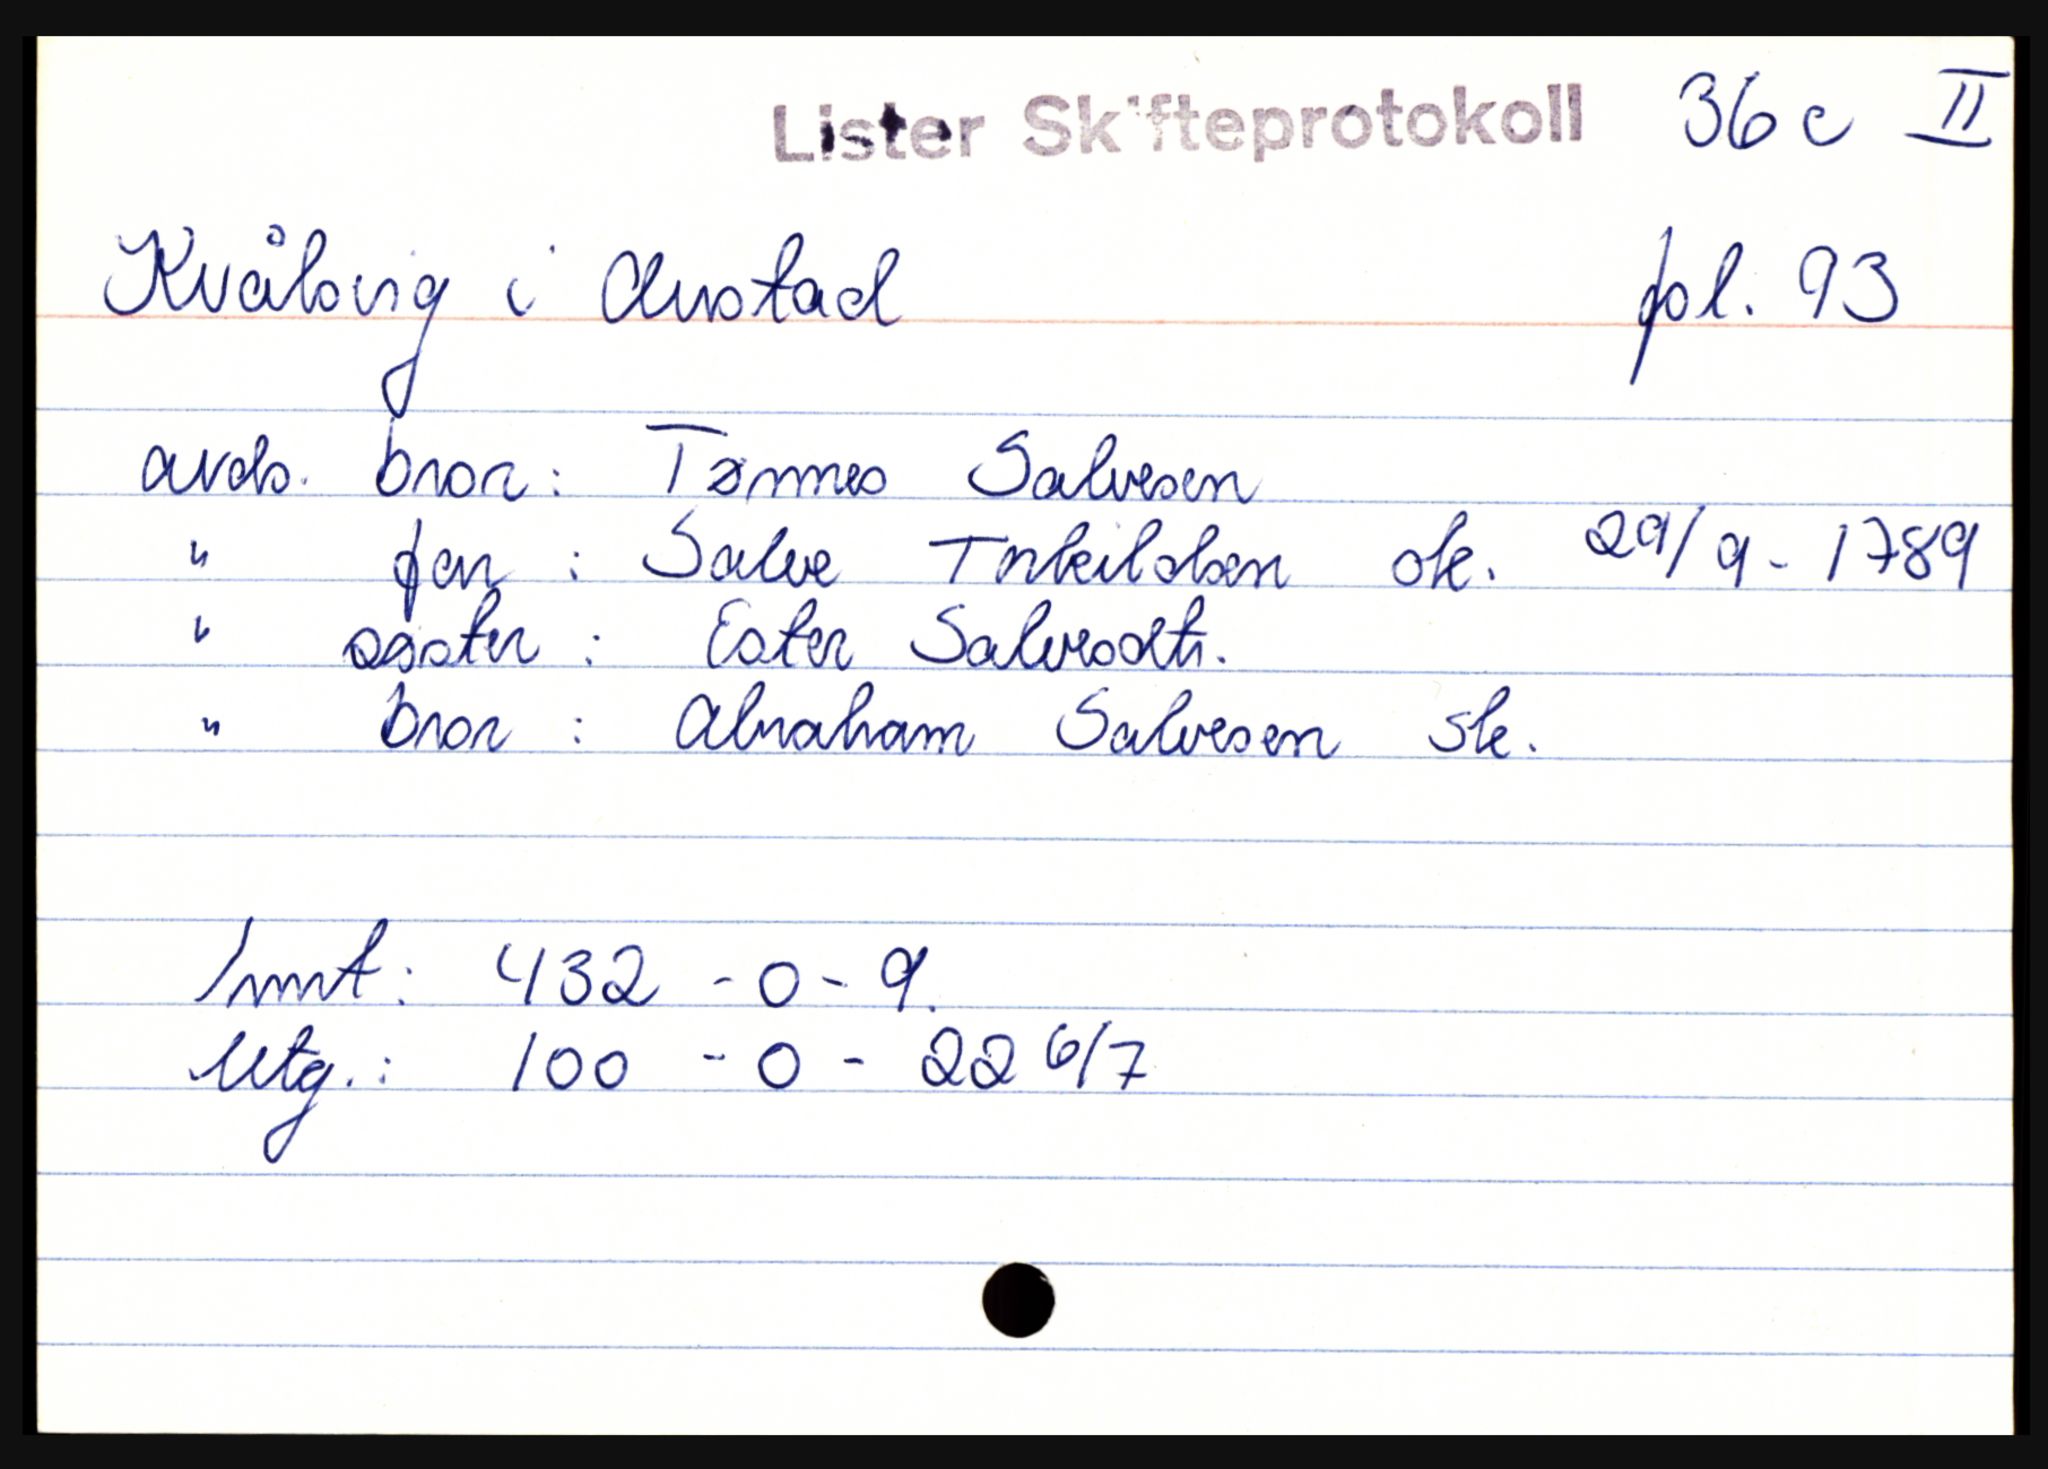 Lister Skifteprotokoll 36 c II
Kvålsvig i Austad fol. 93
avds. bror : Tønnes Salvesen
" far : Salve Torkildsen sk. 29/9 - 1789
" søster : Ester Salvesdtr.
" bror : Abraham Salvesen sk.
Innt : 432 - 0 - 9.
Utg. : 100 - 0 - 22 6/7